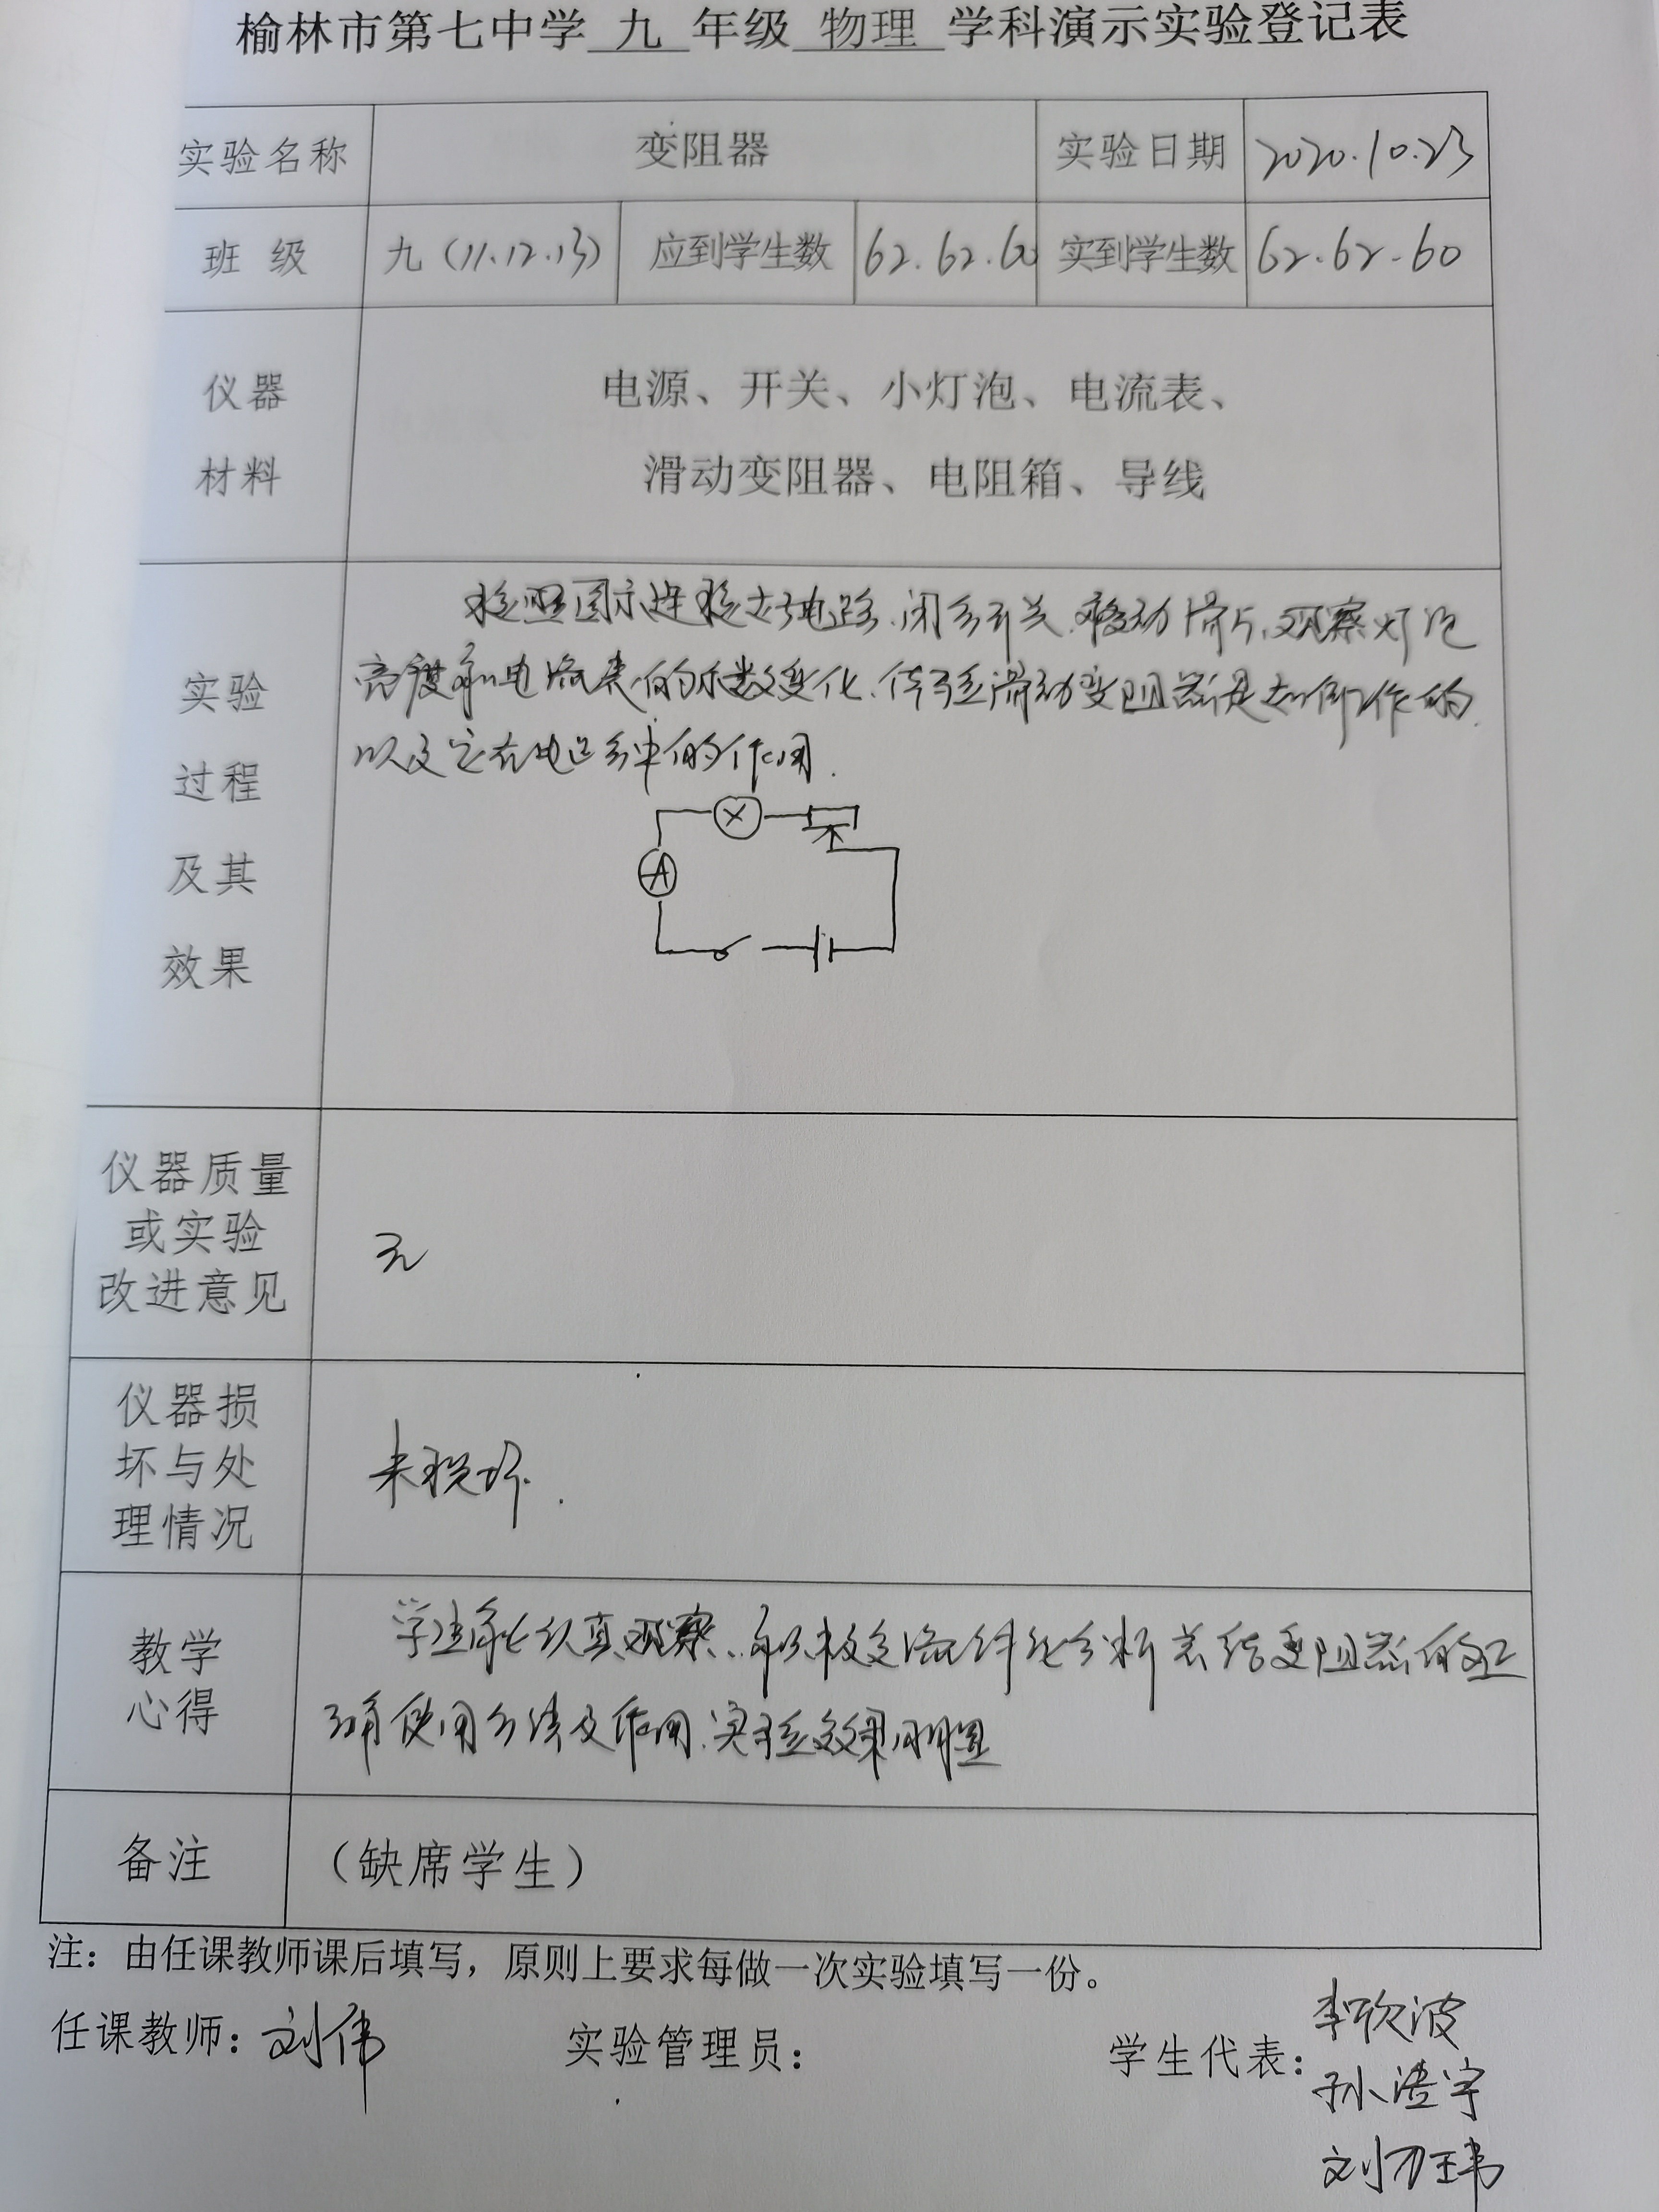 榆林市第七中学 九 年级 物理 学科演示实验登记表
实验名称 变阻器 实验日期 2020.10.23
班 级 九（11.12.13） 应到学生数 62.62.60 实到学生数 62.62.60
仪器
材料
电源、开关、小灯泡、电流表、
滑动变阻器、电阻箱、导线
实验
过程
及其
效果
按照图示连接好电路.闭合开关.移动滑片.观察灯泡
亮度和电流表的示数变化.体验滑动变阻器是如何工作的.
以及它在电路中的作用.
A
仪器质量
或实验
改进意见
无
仪器损
坏与处
理情况
未损坏.
教学
心得
学生能认真观察.积极交流并能分析总结变阻器的正
确使用方法及作用.实验效果明显
备注
（缺席学生）
注：由任课教师课后填写，原则上要求每做一次实验填写一份。
任课教师：刘伟 实验管理员： 学生代表：李欣波
孙浩宇